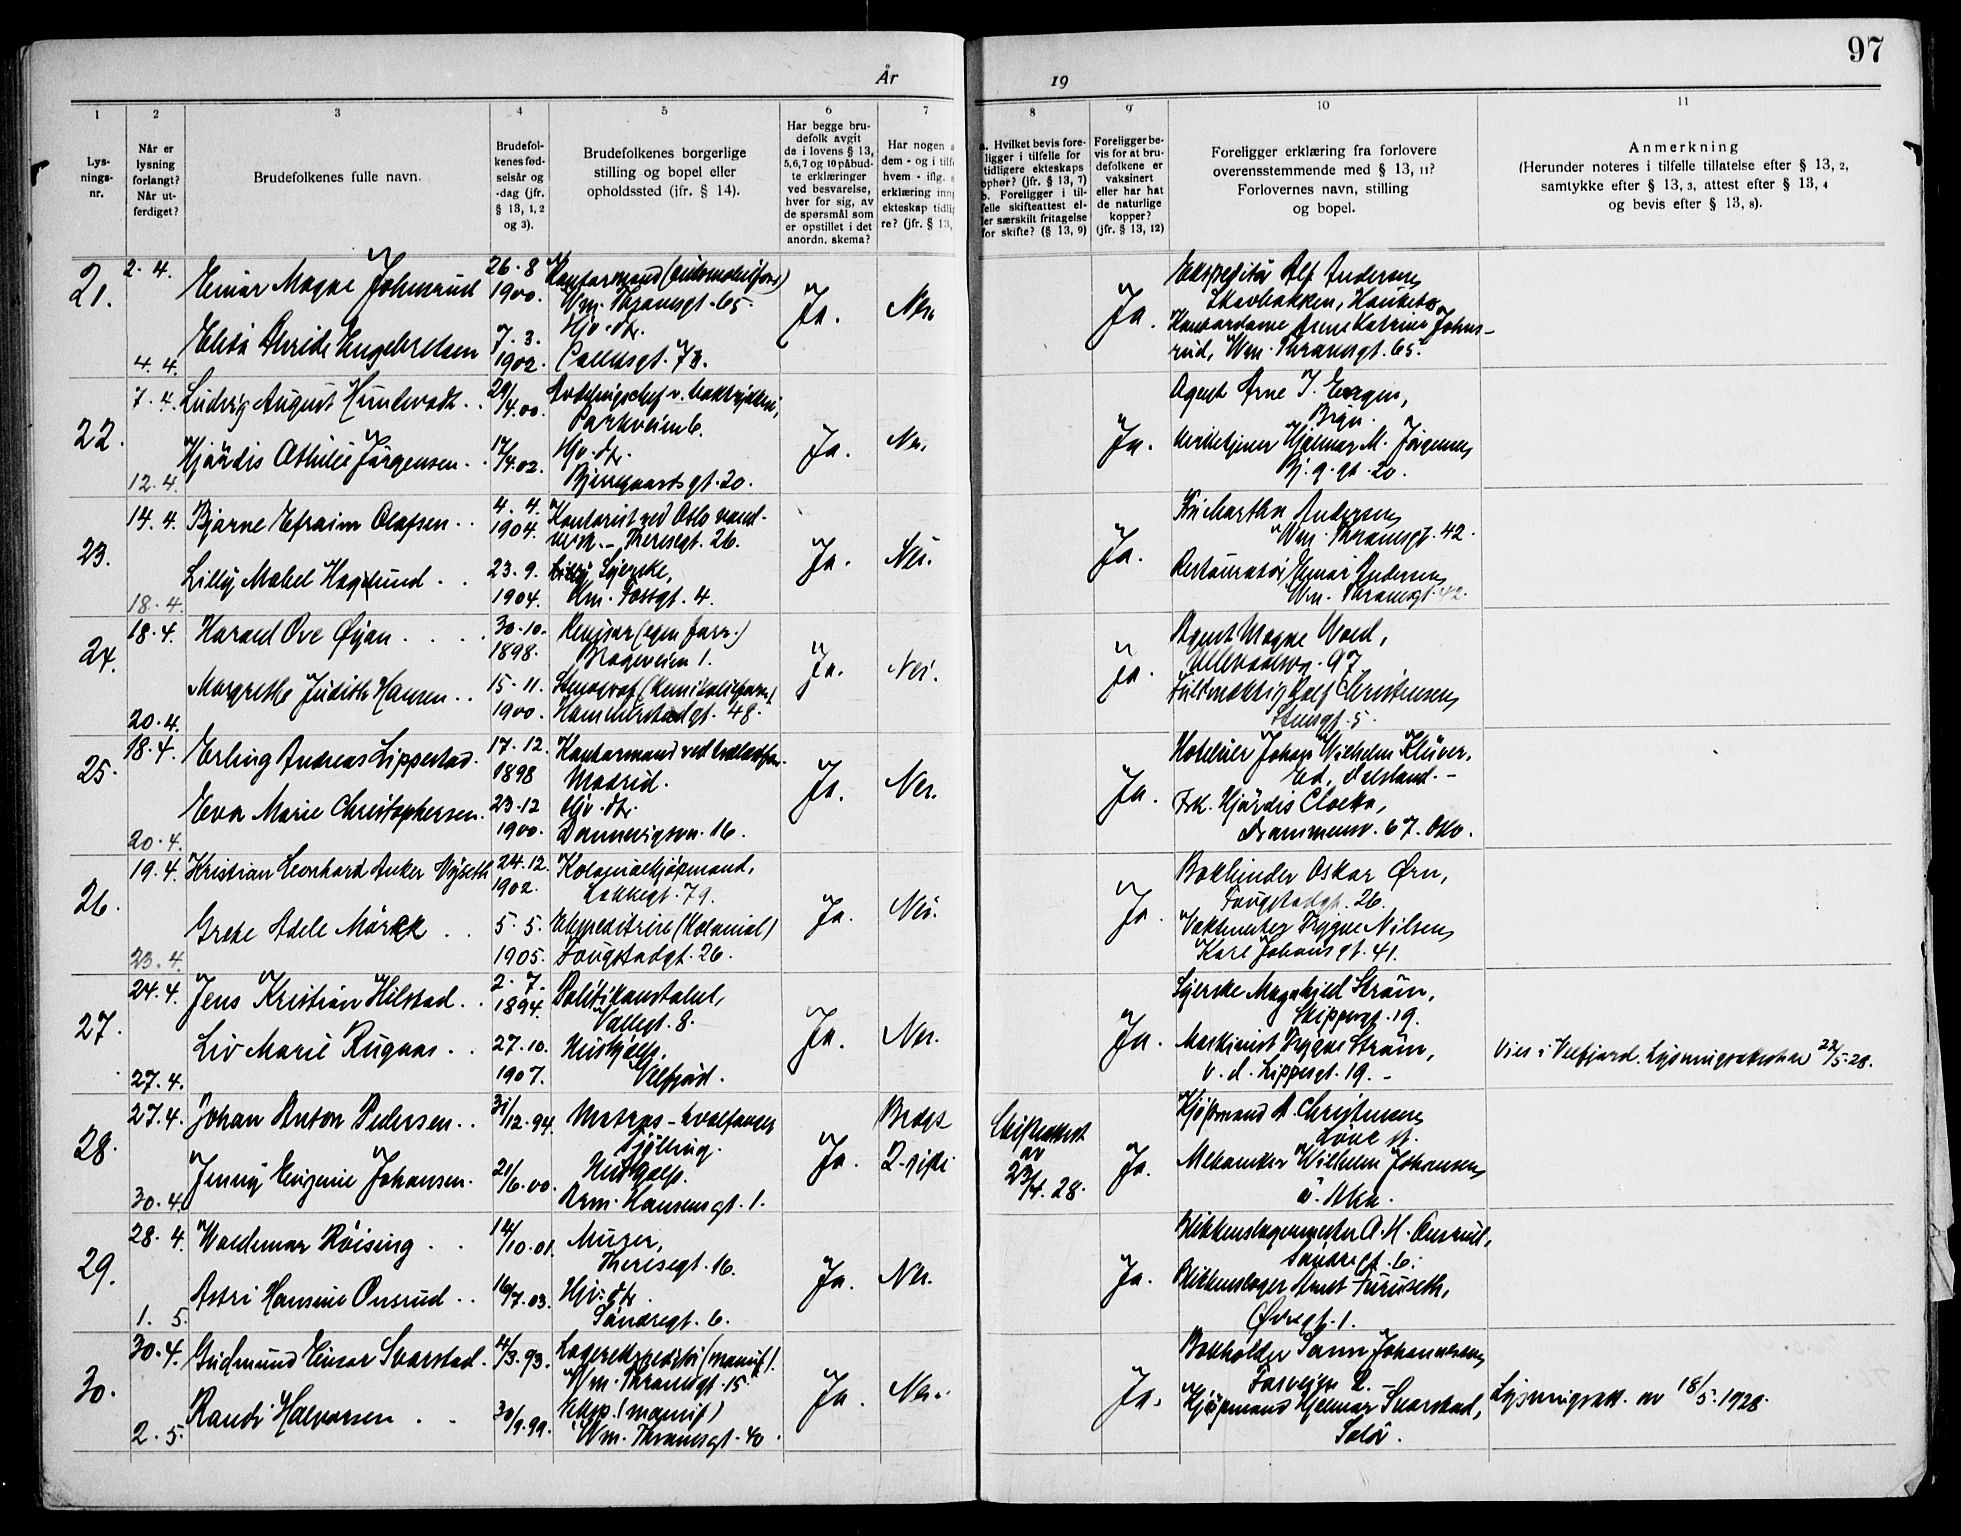 97
År
19
1
2
3
4
5
6
7
8
9
10
11
Lys-
nings-
nr.
Når er
lysning
forlangt?
Når ut-
ferdiget?
Brudefolkenes fulle navn.
Brudefol-
kenes fød-
selsår og
-dag (jfr.
§ 13, 1, 2
og 3).
Brudefolkenes borgerlige
stilling og bopel eller
opholdssted (jfr. § 14).
Har begge bru-
defolk avgit
de i lovens § 13,
5, 6, 7 og 10 påbud-
te erklæringer
ved besvarelse,
hver for sig, av
de spørsmål som
er opstillet i det
anordn. skema?
Har nogen a
dem - og i tilf
hvem - iflg.
erklæring inn
ekteskap tidli
re? (jfr. § 13,
a. Hvilket bevis fore-
ligger i tilfelle for
tidligere ekteskaps
ophør? (jfr. § 13, 7)
b. Foreligger i til-
felle skifteattest el-
ler særskilt fritagelse
for skifte? (§ 13, 9)
Foreligger be-
vis for at bru-
defolkene er
vaksinert
eller har hat
de naturlige
kopper?
(jfr. § 13, 12)
Foreligger erklæring fra forlovere
overensstemmende med § 13, 11?
Forlovernes navn, stilling
og bopel.
Anmerkning
(Herunder noteres i tilfelle tillatelse efter § 13, 2,
samtykke efter § 13, 3, attest efter § 13, 4
og bevis efter § 13, 8).
21.
2. 4.
Einar Magne Johnsrud
26. 8
1900.
Wm. Thranesgt. 65
Ja.
Nei.
Ja.
Ekspeditør Alf Andersen
Kontordame Anne Katrine Johns-
rud, Wm. Thranesgt. 65.
4. 4.
Engebretsen
7. 3.
1902.
Hjv. dtr.
73.
22.
7. 4.
Ludvig August
29/4.00.
Parkveien 6.
Ja.
Nei.
Ja.
Agent Arne
Bryn.
12. 4.
Hjørdis Othilie Jørgensen.
17/4.02.
Hjv. dtr.
Bjerregaardsgt. 20.
Hjalmar M. Jørgensen
Bj. g. gt. 20.
23.
14. 4.
Bjarne Efraim Olafsen.
4. 4.
1904.
Kontorist ved Oslo
Theresegt. 26.
Ja.
Nei.
Ja.
Martha Andersen
Wm. Thranesgt. 42.
18. 4.
Lilly Mabel Haglund
23. 9.
1904.
Syerske,
4.
Restauratør Einar Andersen
Wm. Thranesgt. 42.
24.
18. 4.
Harald Ove Øyan
30. 10.
1898.
1.
Ja.
Nei.
Ja.
Agent Magne Wold,
97
20. 4.
Margrethe Judith Hansen
15. 11.
1900.
Hammerstadgt. 48.
Fuldmæktig Rolf Christensen
Stensgt. 5.
25.
18. 4.
Erling Andreas Lippestad.
17. 12.
1898
Kontormand ved
Madrid.
Ja.
Nei.
Ja.
Hotelier Johan Wilhelm Klüver,
20. 4.
Eva Marie Christophersen.
23. 12
1900.
Hjv. dtr.
Dannevigsvn. 16.
Frk. Hjørdis
Drammensv. 67. Oslo.
26.
19. 4.
Kristian Leonhard Anker Nyseth
24. 12.
1902.
Kolonialkjøpmand,
Lakkegt. 79.
Ja.
Nei.
Ja.
Bokbinder Oskar Ørn,
Fougstadgt. 26.
23. 4.
Grete Adele Mørck
5. 5.
1905.
Ekspeditrise (kolonial)
Fougstadgt. 26.
Vaktmester Trygve Nilsen,
Karl Johans gt. 41.
27.
24. 4.
Jens Kristian Hilstad
2. 7.
1894.
Politikonstabel,
Vallegt. 8.
Ja.
Nei.
Ja.
Syerske Magnhild Strøm,
Skippergt. 19.
27. 4.
Liv Marie Rugaas
27. 10.
1907.
Hushjelp.
Velfjord.
Maskinist Trygve Strøm,
19.
Vies i Velfjord. Lysningsattest 22/5.28.
28.
27. 4.
Johan Anton Pedersen
31/12.94.
Ja.
Begge
2. gift
Skifteattest
av
23/4.28.
Ja.
Kjøpmand A. Christensen
30. 4.
Jenny Eugenie Johansen.
21/6.00.
Hushjelp.
Arm. Hansensgt. 1.
Mekaniker Wilhelm Johansen
29.
28. 4.
Waldemar Røising
14/10.01.
Murer,
Theresegt. 16.
Ja.
Nei.
Ja.
Blikkenslagermester A. H. Onsrud,
Søndregt. 6.
1. 5.
Astri Hansine Onsrud
16/7.03.
Hjv. dtr.
Søndregt. 6.
Blikkenslager Arnt Furuseth,
Øvregt. 1.
30.
30. 4.
Gudmund Einar Svarstad.
4/3.93.
Lagerekspeditør (manuf).
Wm. Thranesgt. 15
Ja.
Nei.
Ja.
Bokholder Johannesen
2. 5.
Randi Halvorsen
30/9.99.
Eksp. (manuf)
Wm. Thranesgt. 40.
Kjøpmand Hjalmar Svarstad,
Solør.
Lysningsatt. av 18/5.1928.